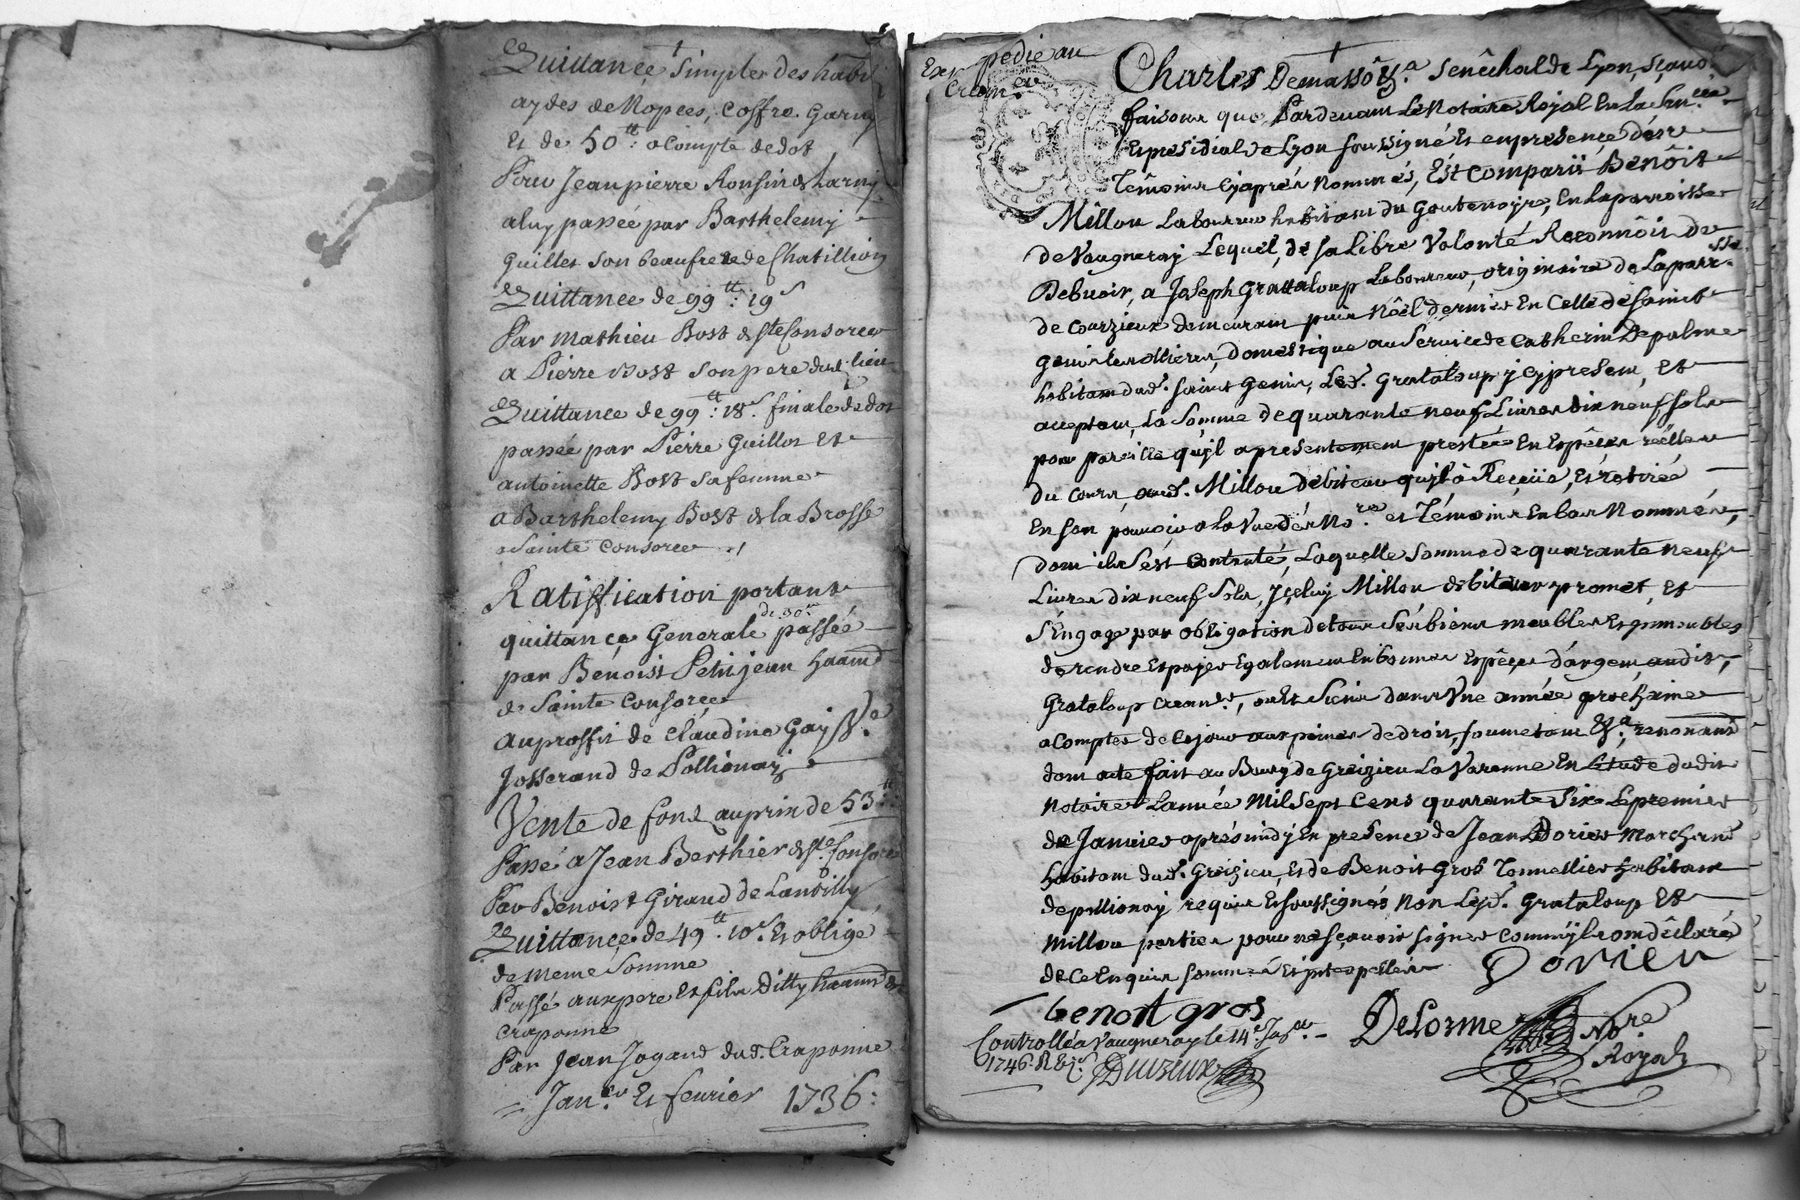 Quittance simple des habi
aydes de Nopces, coffre garny
Et de 50ᵗᵗ: a Compte de dot
Pour Jean pierre Ronsin de Larny
a luy passée par Barthelemy
Guillot son beaufrere de Chatillion
Quittance de 99ᵗᵗ: 19ˢ
Par Mathieu Bost de Ste Consorce
a Pierre Bost son pere dud. lieu
Quittance de 99ᵗᵗ: 18ˢ. finale de dot
passée par Pierre Guillot Et
antoinette Bost sa femme
a Barthelemy Bost de la Brosse
a Sainte Consorce
Ratiffication portant
de 90ᵗᵗ
quittance Generale passée
par Benoist Petitjean haant
de Sainte Consorce
au proffit de Claudine Gay Vᵉ
Josserand de Pollionay
Vente de fond au prix de 53ᵗᵗ:
Passé a Jean Berthier de Ste Consorce
Par Benoist Giraud de Lantilly
Quittance de 49ᵗᵗ: 10ˢ. Et obligé
de meme Somme
Passé aux pere Et fils Ditty haants de
Craponne
Par Jean Jogand dud. Craponne
= Janᵉʳ Et fevrier 1736:
Expedié au
Crean.ᵉʳ
Charles Demasso &.ᵃ Senêchal de Lyon, sçavoir
faisons que Pardevant Le Notaire Royal En la Sen.ᶜᵉᵉ
Et presidial de Lyon soussigné Et en presence des
Têmoins Cy aprés Nommés, Ést Comparû Benôit
Millou Laboureur habitant du Goutenoyre, En la parroisse
de Vaugneray Lequel, de sa Libre Volonté Reconnôit De
Debvoir, a Joseph Grattaloup Laboureur, originaire de La parr.ˢˢᵉ
de Courzieux demeurant puis Nôel dernier En Celle de saint
Genis les ollieres, domestique au Service de Catherin Depalme
habitant dud. saint Genis, Led. Grataloup y cy present, Et
acceptant, La Somme de quarante neuf Livres dix neuf sols
pour pareille qu'il a presentement prestée En Espêces réelles
du Cours, aud. Millou debiteur qu'il à Reçüe, Et retirée
En son pouvoir a la Vue dés No.ʳᵉ et Témoins En bas Nommés,
dont il s'est contenté, Laquelle Somme de quarante neuf
Livres dix neuf Sols, Jçeluy Millou debiteur promet, Et
s'Engage par obligation de tous Sés biens meubles Et jmmeubles
de rendre Et payer Egalement En bonnes Espêçes d'argent, audit,
Grataloup crean.ᵉʳ, ou Et Siens dans Vne année prochaine
a Compter de Ce jour aux peines de droit, soumetant &.ᵃ, renonçant
dont acte fait au Bourg de Greizieu La Varenne En Estude dudit
Notaire L'année Mil Sept Cens quarante Six Le premier
de Janvier aprés midy En presence de Jean Dorier Marchand
habitant dud. Greizieu, Et de Benoit Gros Tonnellier habitant
de pollionay requis Et soussignés Non Lesd. Grataloup Et
Millou parties pour ne sçavoir signer Comm'jls ont dêclaré
de Ce Enquis sommés Et jnterpellés
Dorieu
benoit gros
Controllé a Vaugneray le 14ᵉ Jan.ᵉʳ
1746. R
Delorme Noʳᵉ
Royal